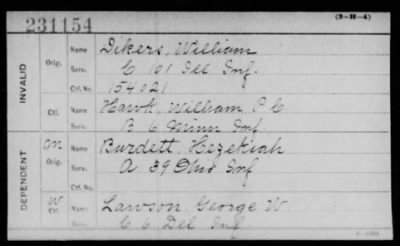 231154
(3-11-4)
INVALID
Orig.
Name Dikers, William
Serv. C 101 Ill Inf.
Ctf. No. 154021
Ctf.
Name Hawk, William P C
Serv. B 6 Minn Inf
DEPENDENT
M
Orig.
Name Burdett, Hezekiah
Serv. A 39 Ohio Inf
Ctf. No.
W
Ctf.
Name Lawson George W
Serv. C 6 Del Inf